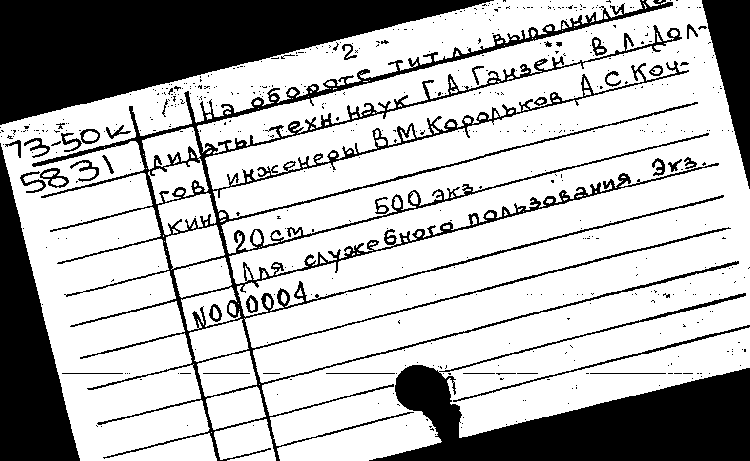 2
На обороте тит.л.: выполнили ка-
73-50к
дидаты техн. наук Г.А.Ганзен, В.Л.Дол-
5831
гов, инженеры В.М.Корольков, А.С.Коч-
кина.
20см. 500 экз.
Для служебного пользования. Экз.
N000004.